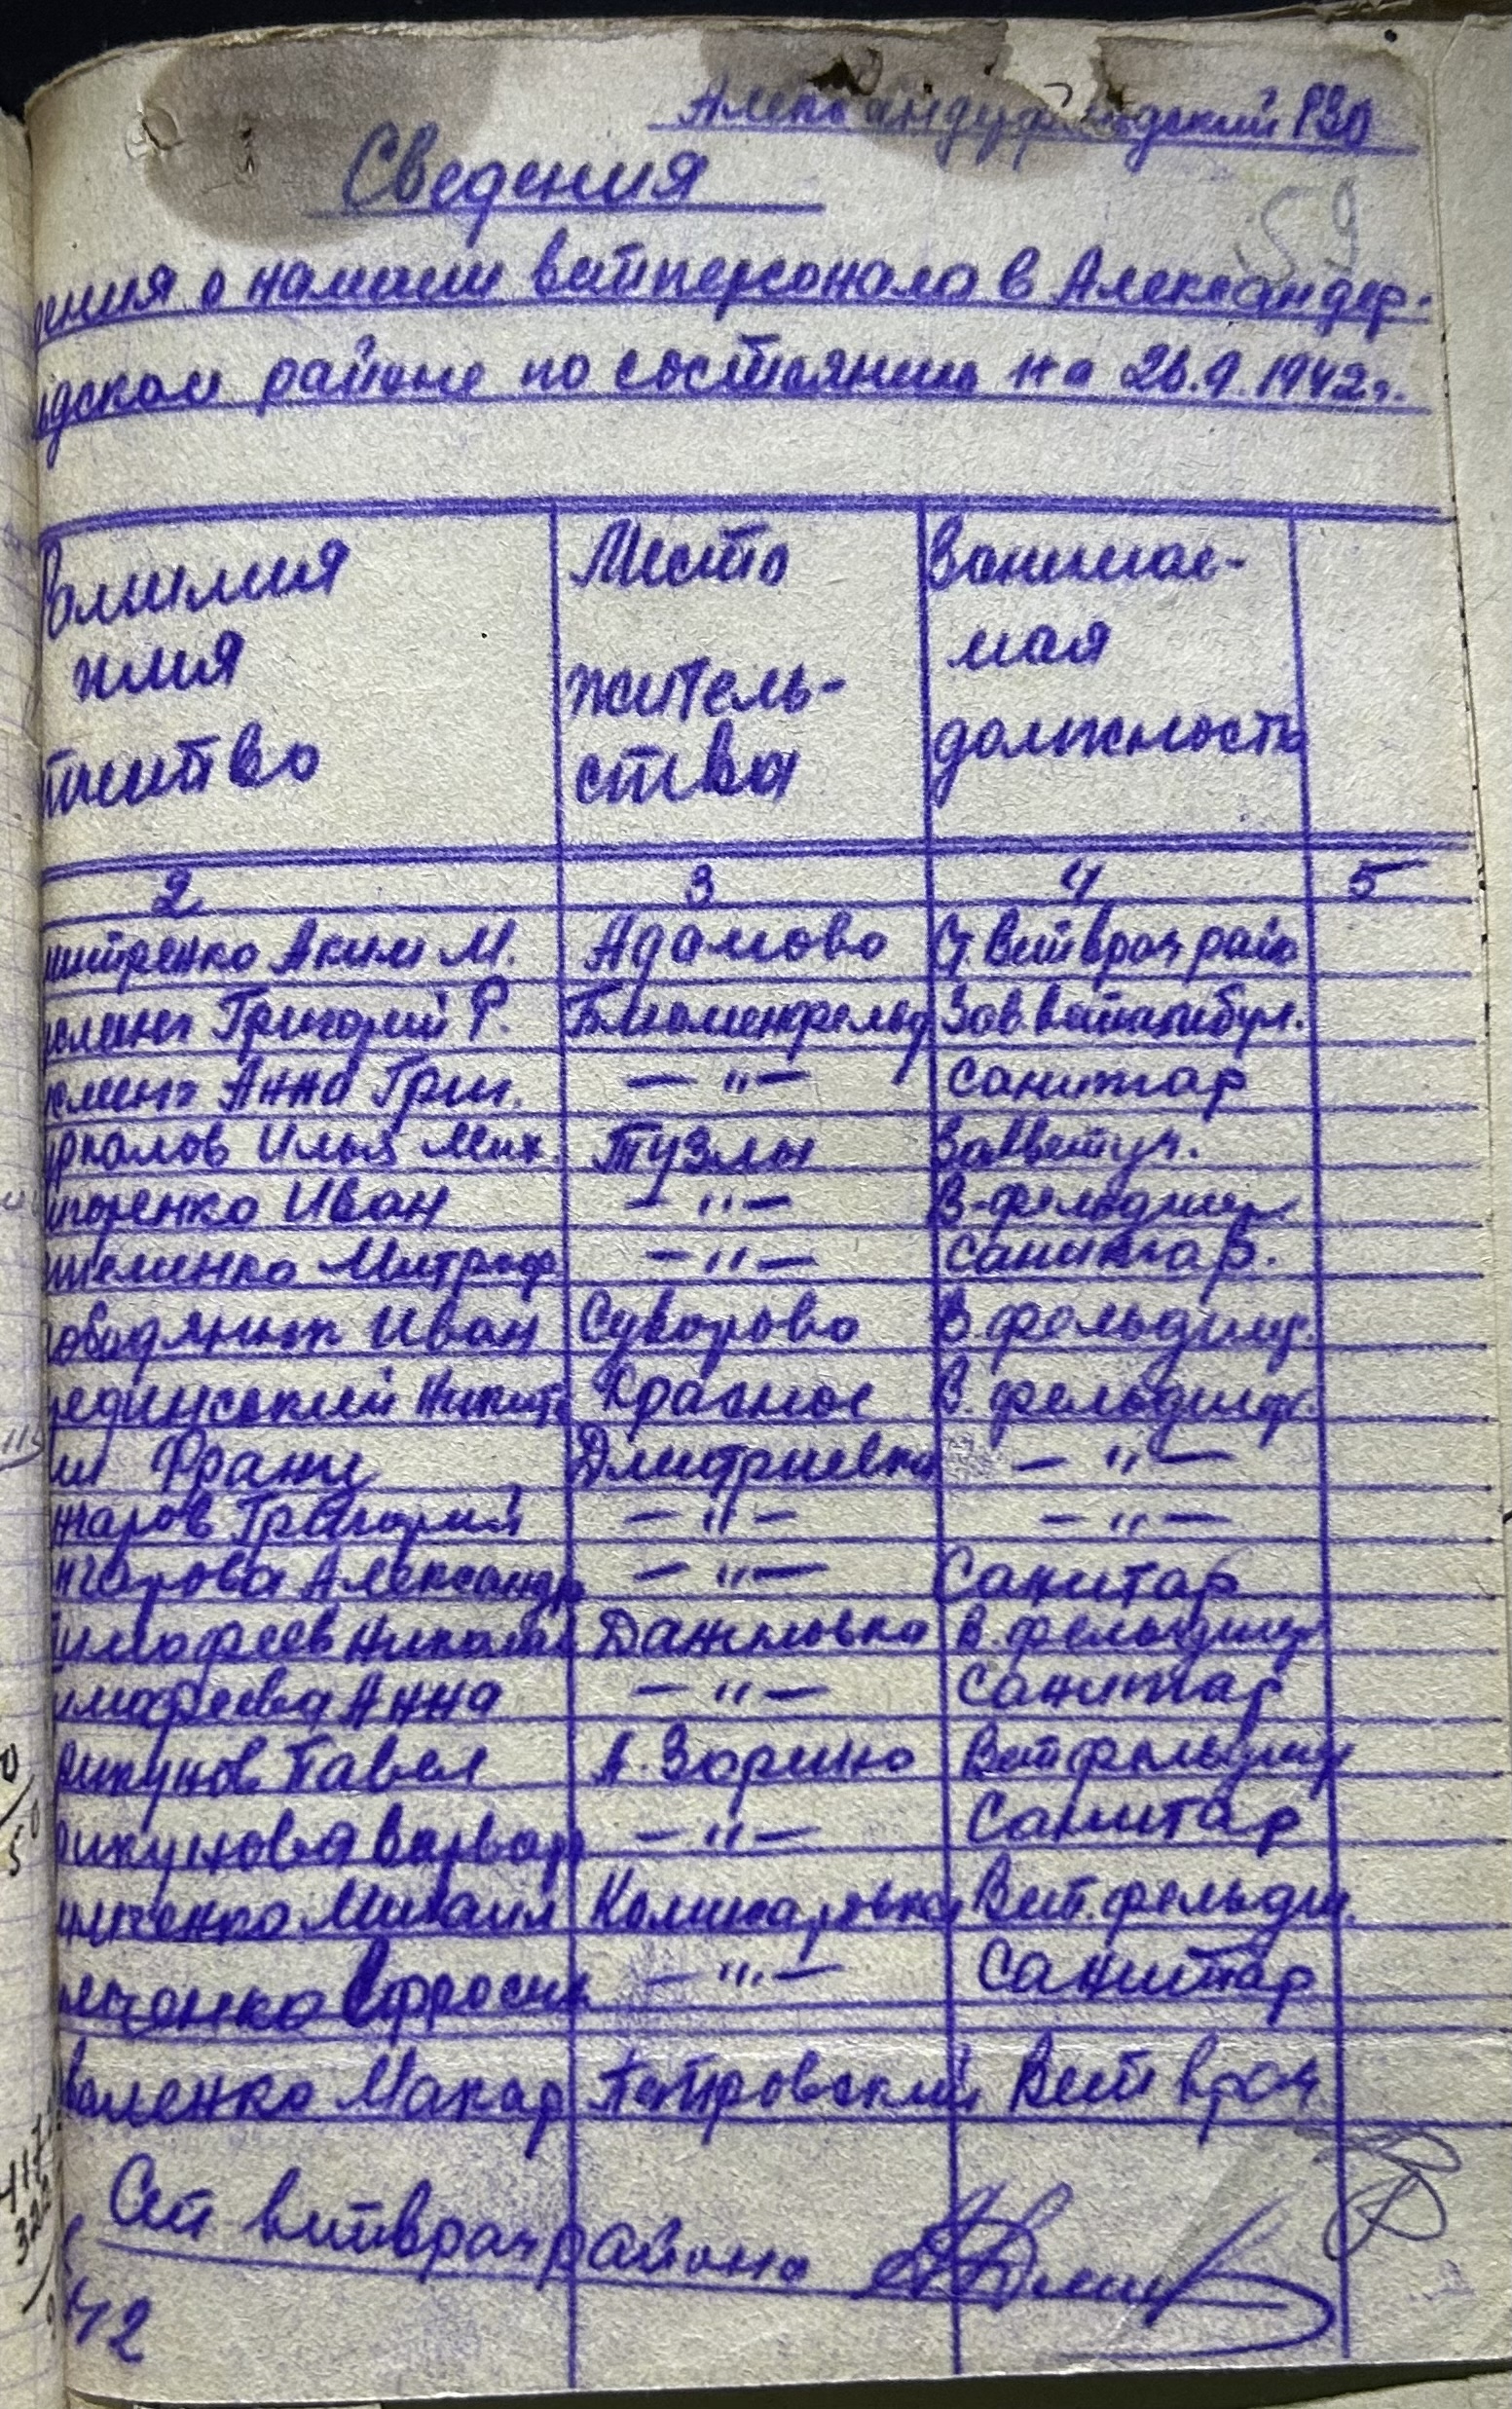 Александерфельдский РЗО
Сведения
59
дения о наличии ветперсонала в Александер-
ьдском районе по состоянию на 26.9.1942г.
Фамилия имя тчество | Место житель-ства | Занимае-мая должность
2 3 4 5
митренко Аким М. Адамово Ст. Ветврач райо
Григорий Р. Блюменфельд Зав. ветамбул.
Анна Григ. — " — Санитар
Илья Мих. Тузлы Завветуч.
Иван — " — В-фельдшер
Митроф — " — Санитар.
Иван Суворово В. фельдшер.
Никита Красное В. фельдшер.
Франц Дмитриевка — " —
нчаров Григорий — " — — " —
нчарова Александр — " — Санитар
Тимофеев Николай Даниловка В. фельдшер
имофеева Анна — " — Санитар
рикунов Павел А. Зорино Ветфельдшер
рикунова Варвар — " — Санитар
Михаил Комисаровка Вет. фельдш.
Ефросин — " — Санитар
валенко Макар Петровский Ветврач
Ст. ветврач района
42